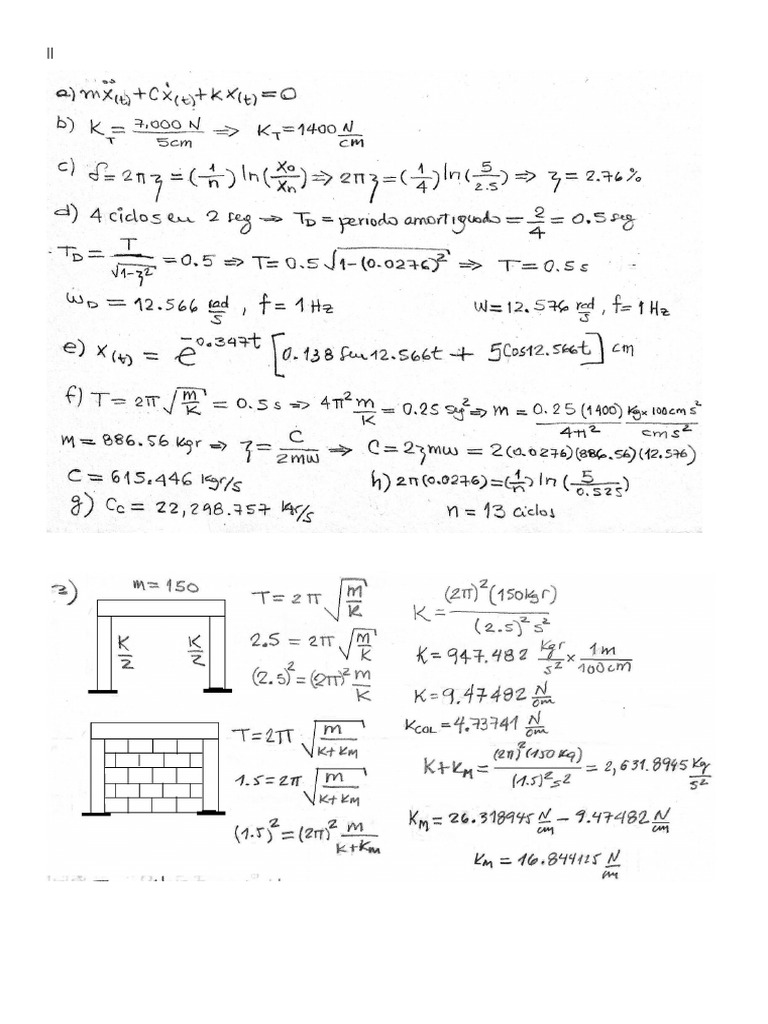 II
a) mẍ(t)+Cẋ(t)+Kx(t)=0
b) K_T = 7,000 N / 5cm ⇒ K_T=1400 N/cm
c) δ=2πʒ=(1/n) ln(Xo/Xn)⇒2πʒ=(1/4) ln(5/2.5)⇒ʒ=2.76%
d) 4 ciclos en 2 seg ⇒ T_D=periodo amortiguado=2/4=0.5seg
T_D=T/√(1-ʒ²)=0.5 ⇒ T=0.5√(1-(0.0276)²) ⇒ T=0.5s
ω_D=12.566 rad/s, f=1Hz W=12.576 rad/s, f=1Hz
e) x(t)=e^(-0.347t) [0.138 Sen12.566t + 5Cos12.566t] cm
f) T=2π√(m/K)=0.5s⇒4π² m/K=0.25 sg²⇒m=0.25(1400)/4π² Kg×100cm s²/cm s²
m=886.56 Kgr⇒ʒ=C/2mw ⇒ C=2ʒmw=2(0.0276)(886.56)(12.576)
C=615.446 Kgr/s h) 2π(0.0276)=(1/n) ln(5/0.525)
g) Cc=22,298.757 Kgr/s n=13 ciclos
3) m=150 T=2π√(m/K) K=(2π)²(150kgr)/(2.5)²s²
K/2 K/2 2.5=2π√(m/K) K=947.482 Kgr/s² × 1m/100cm
(2.5)²=(2π)² m/K K=9.47482 N/cm
T=2π√(m/(K+Km)) K_COL=4.73741 N/cm
1.5=2π√(m/(K+Km)) K+Km=(2π)²(150Kg)/(1.5)²s²=2,631.8945 Kg/s²
(1.5)²=(2π)² m/(K+Km) Km=26.318945 N/cm - 9.47482 N/cm
Km=16.844125 N/cm